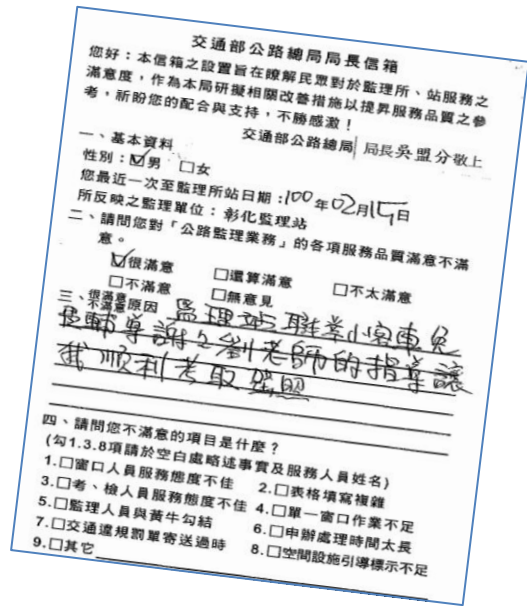 交通部公路總局局長信箱
您好：本信箱之設置旨在瞭解民眾對於監理所、站服務之
滿意度，作為本局研擬相關改善措施以提昇服務品質之參
考，祈盼您的配合與支持，不勝感激！
交通部公路總局 局長吳盟分敬上
一、基本資料
性別：☑男 □女
您最近一次至監理所站日期：100年02月15日
所反映之監理單位：彰化監理站
二、請問您對「公路監理業務」的各項服務品質滿意不滿
意。
☑很滿意 □還算滿意 □不太滿意
□不滿意 □無意見
三、很滿意不滿意原因 監理站職業小客車免
輔導謝謝劉老師的指導讓
我順利考取 駕照
四、請問您不滿意的項目是什麼？
(勾1.3.8項請於空白處略述事實及服務人員姓名)
1.□窗口人員服務態度不佳 2.□表格填寫複雜
3.□考、檢人員服務態度不佳 4.□單一窗口作業不足
5.□監理人員與黃牛勾結 6.□申辦處理時間太長
7.□交通違規罰單寄送過時 8.□空間設施引導標示不足
9.□其它